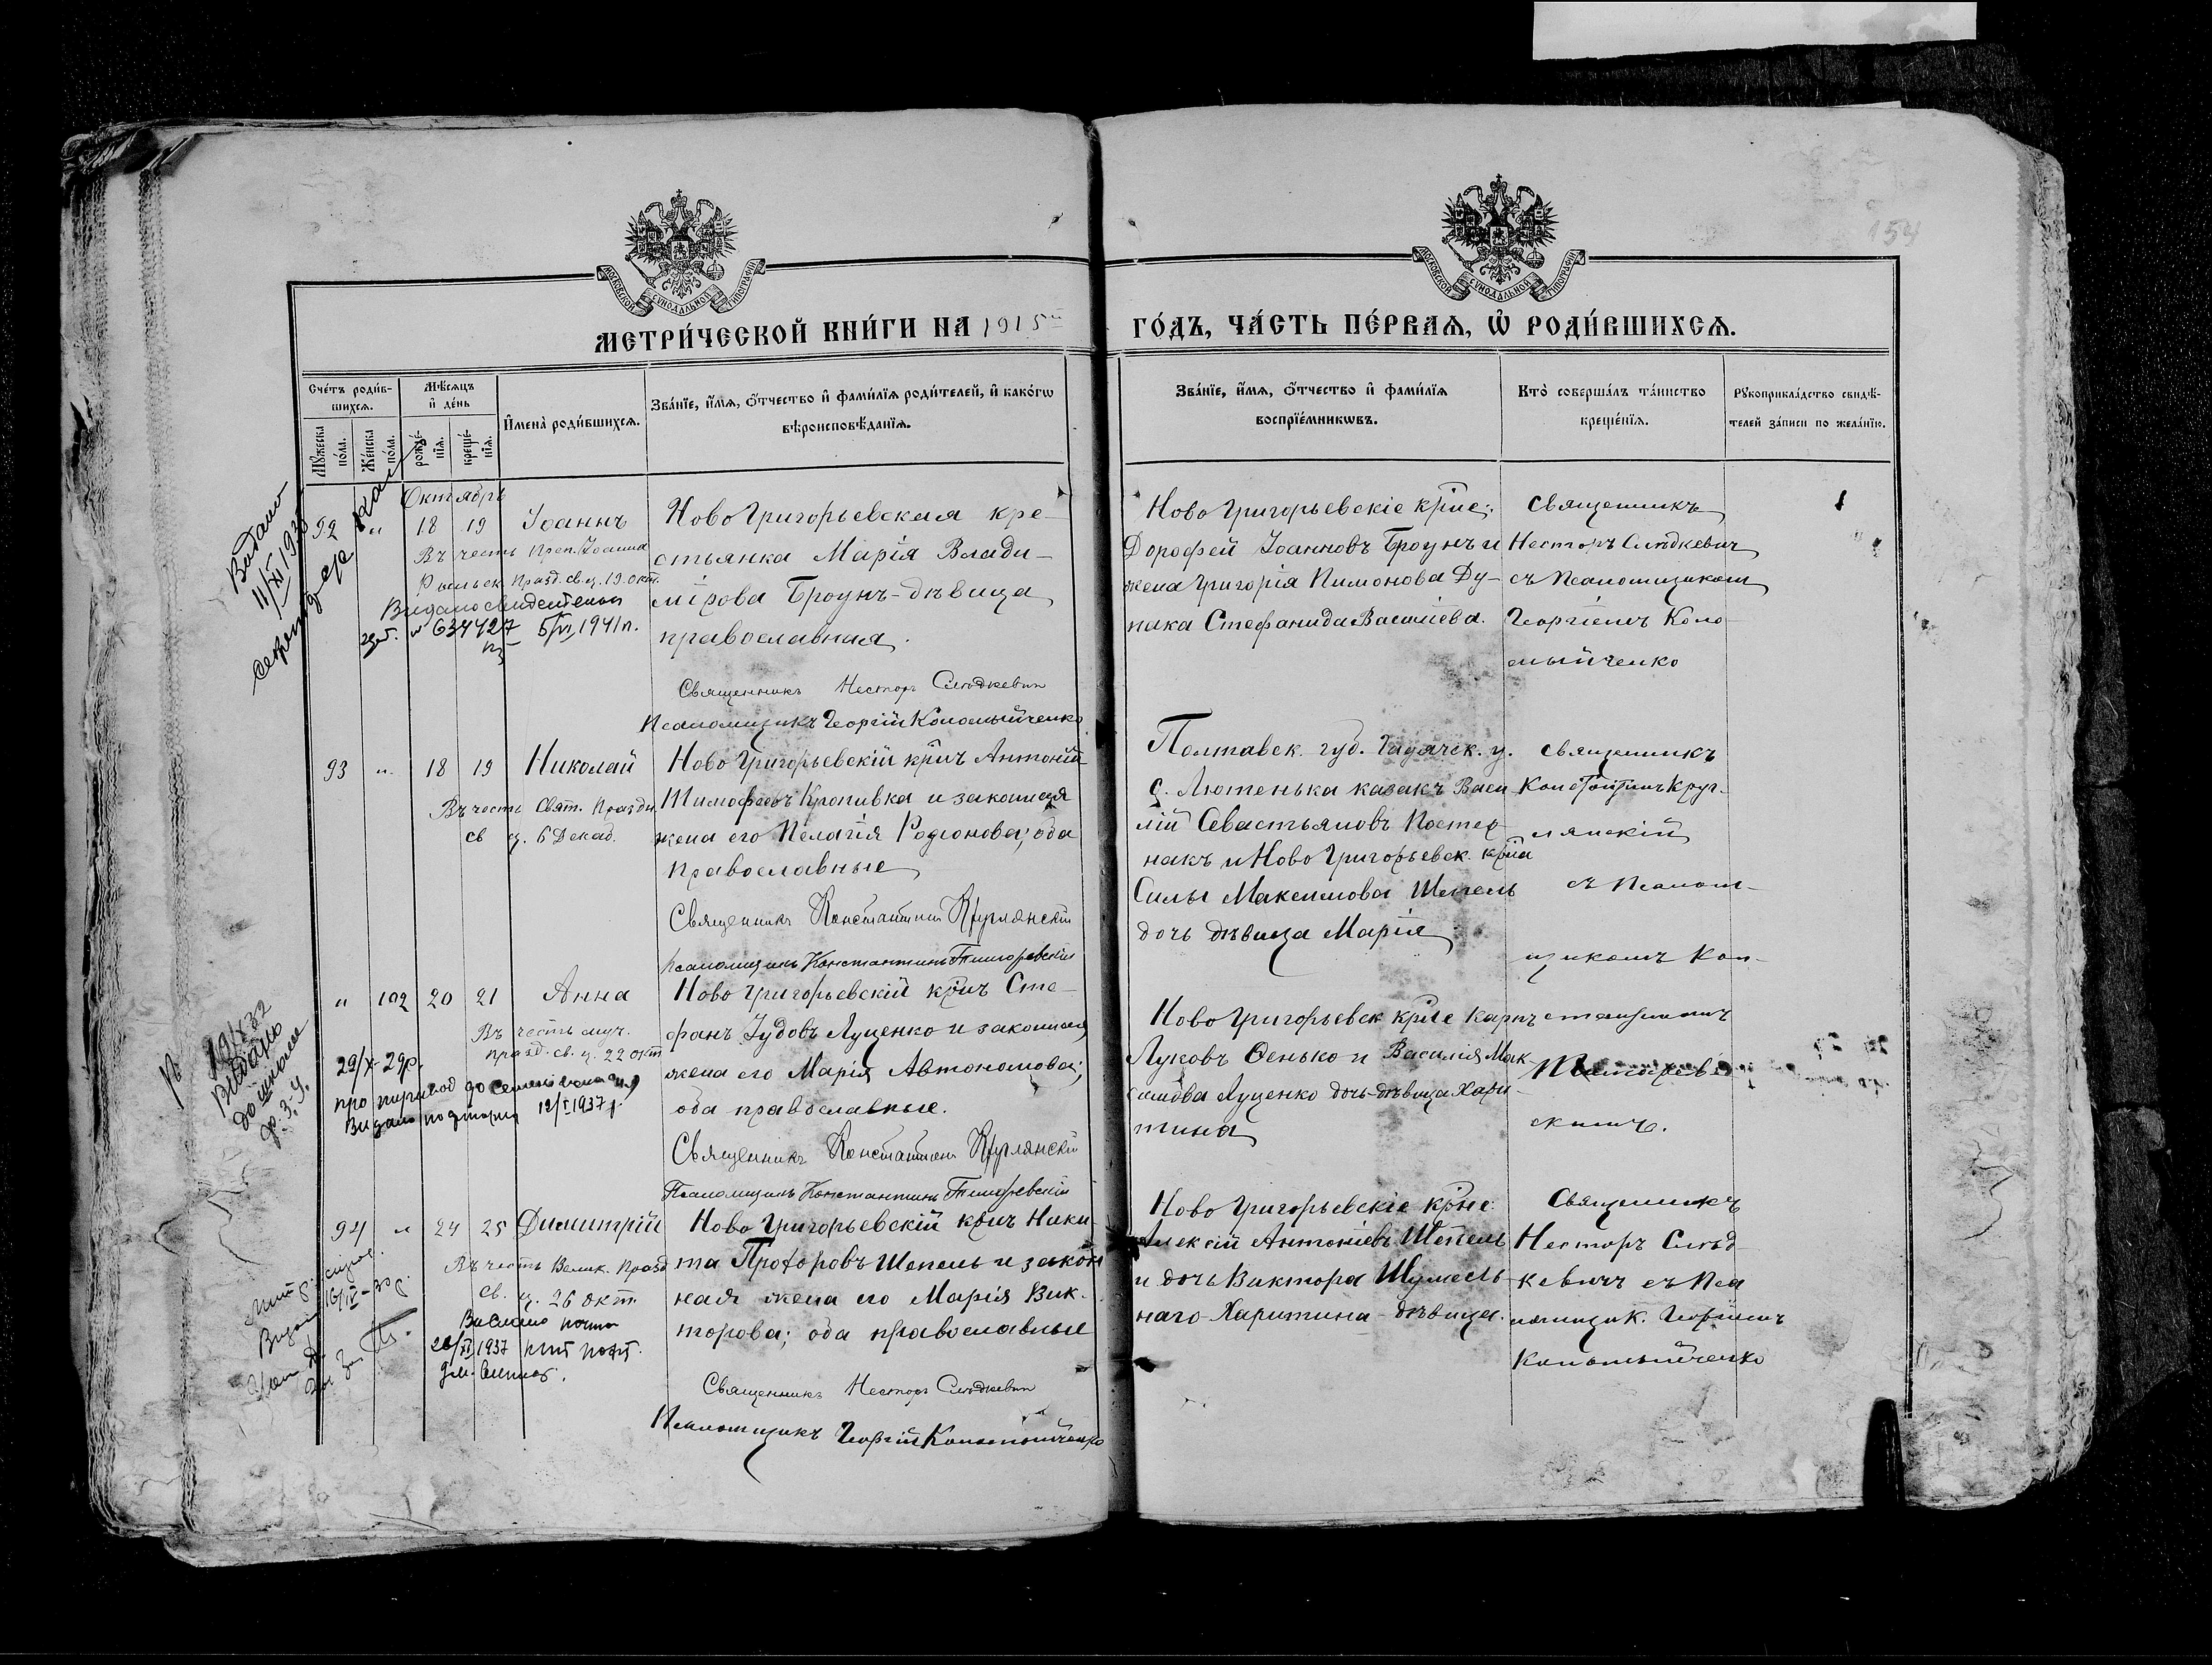 154
МОСКОВСКОЙ СѴНОДАЛЬНОЙ ТИПОГРАФІИ
МОСКОВСКОЙ СѴНОДАЛЬНОЙ ТИПОГРАФІИ
МЕТРИ́ЧЕСКОЙ КНИ́ГИ НА 1915й
ГО́ДЪ, ЧА́СТЬ ПЕ́РВАѦ, Ѡ҆ РОДИ́ВШИХСѦ.
Сче́тъ роди́в-
шихсѧ.
Мꙋ́жеска по́ла.
Же́нска по́ла.
Мѣ́сяцъ и҆ де́нь
рожде́-
нїѧ.
креще́-
нїѧ.
И҆мена̀ роди́вшихсѧ.
Зва́нїе, и҆́мѧ, ѻ҆́тчество и҆ фами́лїѧ роди́телей, и҆ како́гѡ
вѣроисповѣ́данїѧ.
Зва́нїе, и҆́мѧ, ѻ҆́тчество и҆ фами́лїѧ
воспрїе́мникѡвъ.
Кто̀ соверша́лъ та́инство
креще́нїѧ.
Рꙋкоприкла́дство свидѣ́-
телей за́писи по жела́нїю.
Октябрь
92 " 18 19 Іоаннъ
Въ честь Преп. Іоанна
Рыльск. Празд. св. ц. 19 окт.
Видано
11/XI 1930
634427 5/VI 1941 п.
Ново Григорьевская кре-
стьянка Марія Влади-
мірова Броунъ-дѣвица
православная.
Священникъ Несторъ Слюдкевич
Псаломщикъ Георгій Коломыйченко
Ново Григорьевскіе кр҃не:
Дорофей Іоанновъ Броунъ и
жена Григорія Пимонова Ду-
пака Стефанида Василіева.
Священникъ
Несторъ Слюдкевич
съ Псаломщикомъ
Георгіемъ Коло-
мыйченко
93 " 18 19 Николай
Въ честь Свят. Праздн.
св ц. 6 Декаб.
Ново Григорьевскій кр҃нъ Антоній
Тимофеевъ Кропивка и законная
жена его Пелагія Родіонова; оба
православные
Священникъ Константинъ Круглянскій
Псаломщикъ Константинъ Тиморевскій
Полтавск. губ. Гадячск. у.
с. Лютенька казакъ Васи
лій Севастьяновъ Костер-
накъ и Ново Григорьевск. кр҃на
Силы Максимова Шепель
дочь дѣвица Марія
Священникъ
Константинъ Круг-
лянскій
съ Псалом-
щикомъ Кон-
" 102 20 21 Анна
Въ честь муч.
празд. св. ц. 22 окт
29/X-29р.
12/I 1937 р.
Ново Григорьевскій кр҃нъ Сте-
фанъ Іудовъ Луценко и законная
жена его Марія Автономова;
оба православные.
Священникъ Константинъ Круглянскій
Псаломщикъ Константинъ Тиморевскій
Ново Григорьевск кр҃не Карпъ
Луковъ Ѳенько и Василія Мак
симова Луценко дочь-дѣвица Хари-
тина
стантиномъ
скимъ.
94 " 24 25 Димитрій
Въ честь Велик. Празд
св. ц. 26 окт.
1937
Ново Григорьевскій кр҃нъ Ники-
та Прохоровъ Шепель и закон
ная жена его Марія Вик-
торова; оба православные
Священникъ Несторъ Слюдкевич
Псаломщикъ Георгій Коломыйченко
Ново Григорьевскіе кр҃не:
Алексій Антоніевъ Шепель
и дочь Виктора Шумель-
наго Харитина - дѣвица.
Священникъ
Несторъ Слюд-
кевичъ съ Пса
ломщик. Георгіемъ
Коломыйченко